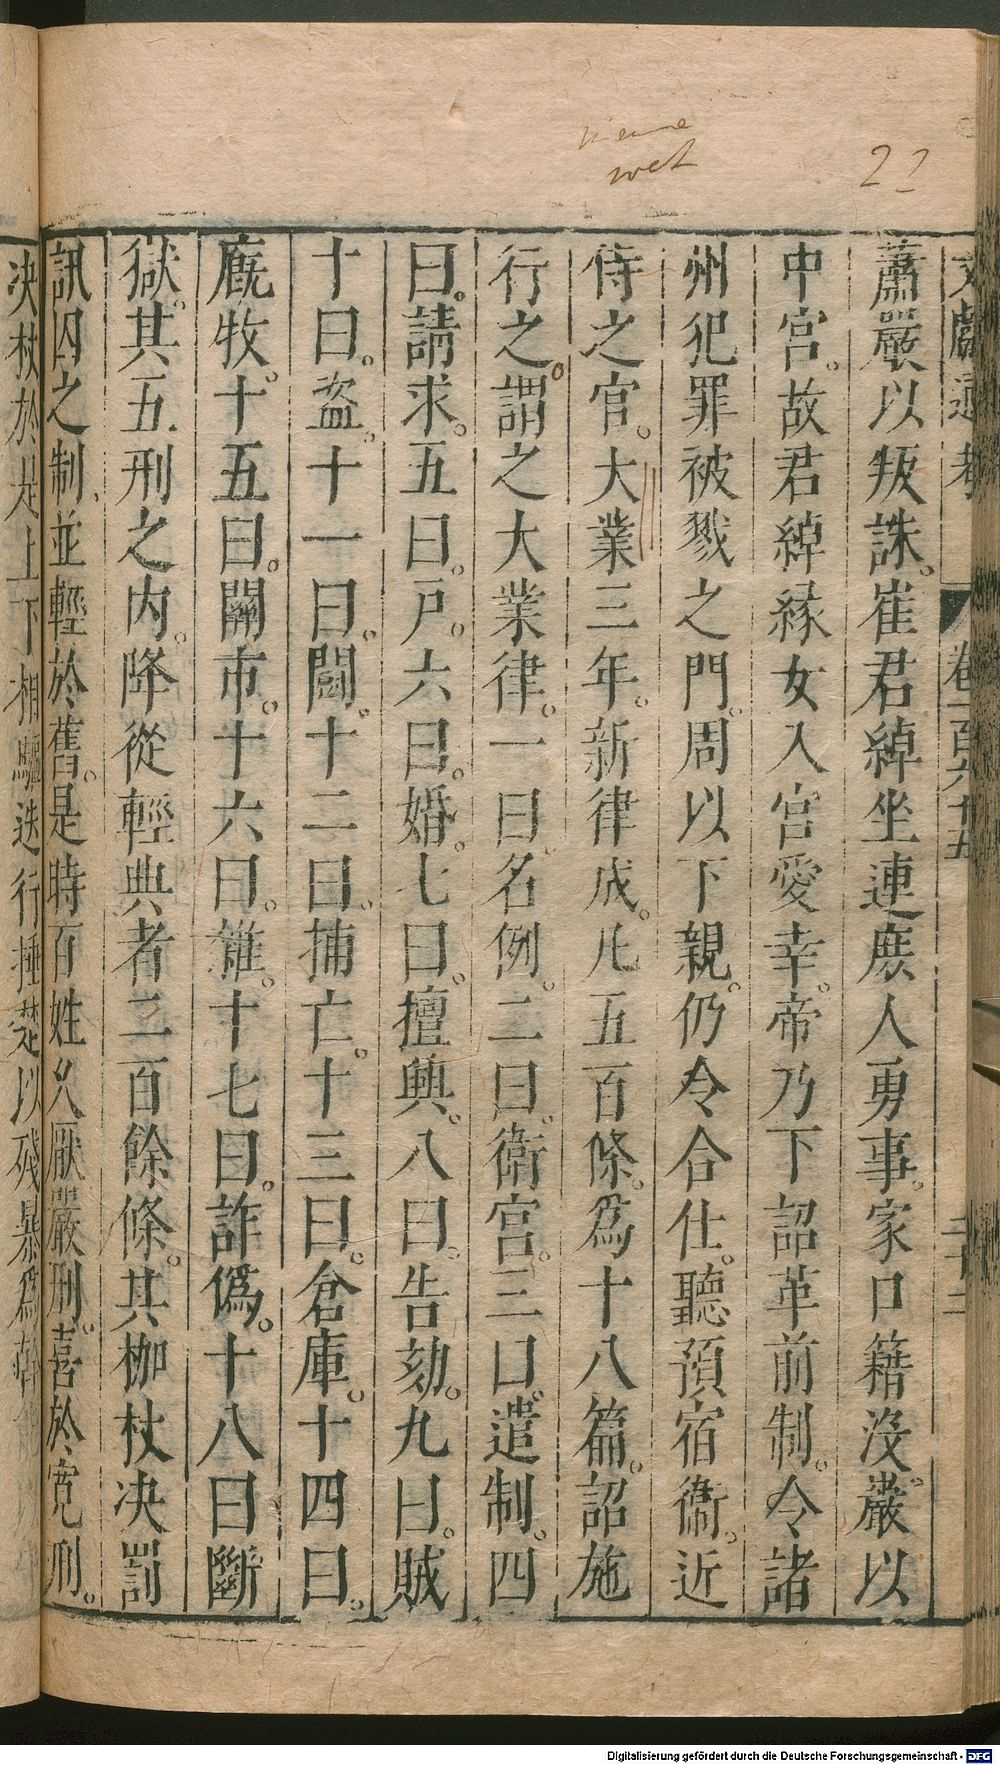 nieuwe
wet
22
文獻通考 卷一百六十五 二十二
蕭嚴以叛誅。崔君綽坐連庶人勇事。家口籍沒。嚴以
中宮。故君綽緣女入宮愛幸。帝乃下詔革前制。令諸
州犯罪被戮之門。周以下親。仍令合仕。聽預宿衛。近
侍之官。大業三年。新律成。凡五百條。為十八篇。詔施
行之。謂之大業律。一曰名例。二曰。衛宮。三曰。遣制。四
曰。請求。五曰。戶。六曰。婚。七曰。擅興。八曰。告劾。九曰。賊
十曰。盜。十一曰。鬬。十二曰。捕亡。十三曰。倉庫。十四曰。
廐牧。十五曰。關市。十六曰。雜。十七曰。詐偽。十八曰斷
獄。其五刑之內。降從輕典者二百餘條。其枷杖決罰
訊囚之制、並輕於舊。是時百姓久厭嚴刑。喜於寬刑。
決杖於是上下相驅迭行捶楚以殘暴為幹
Digitalisierung gefördert durch die Deutsche Forschungsgemeinschaft - DFG